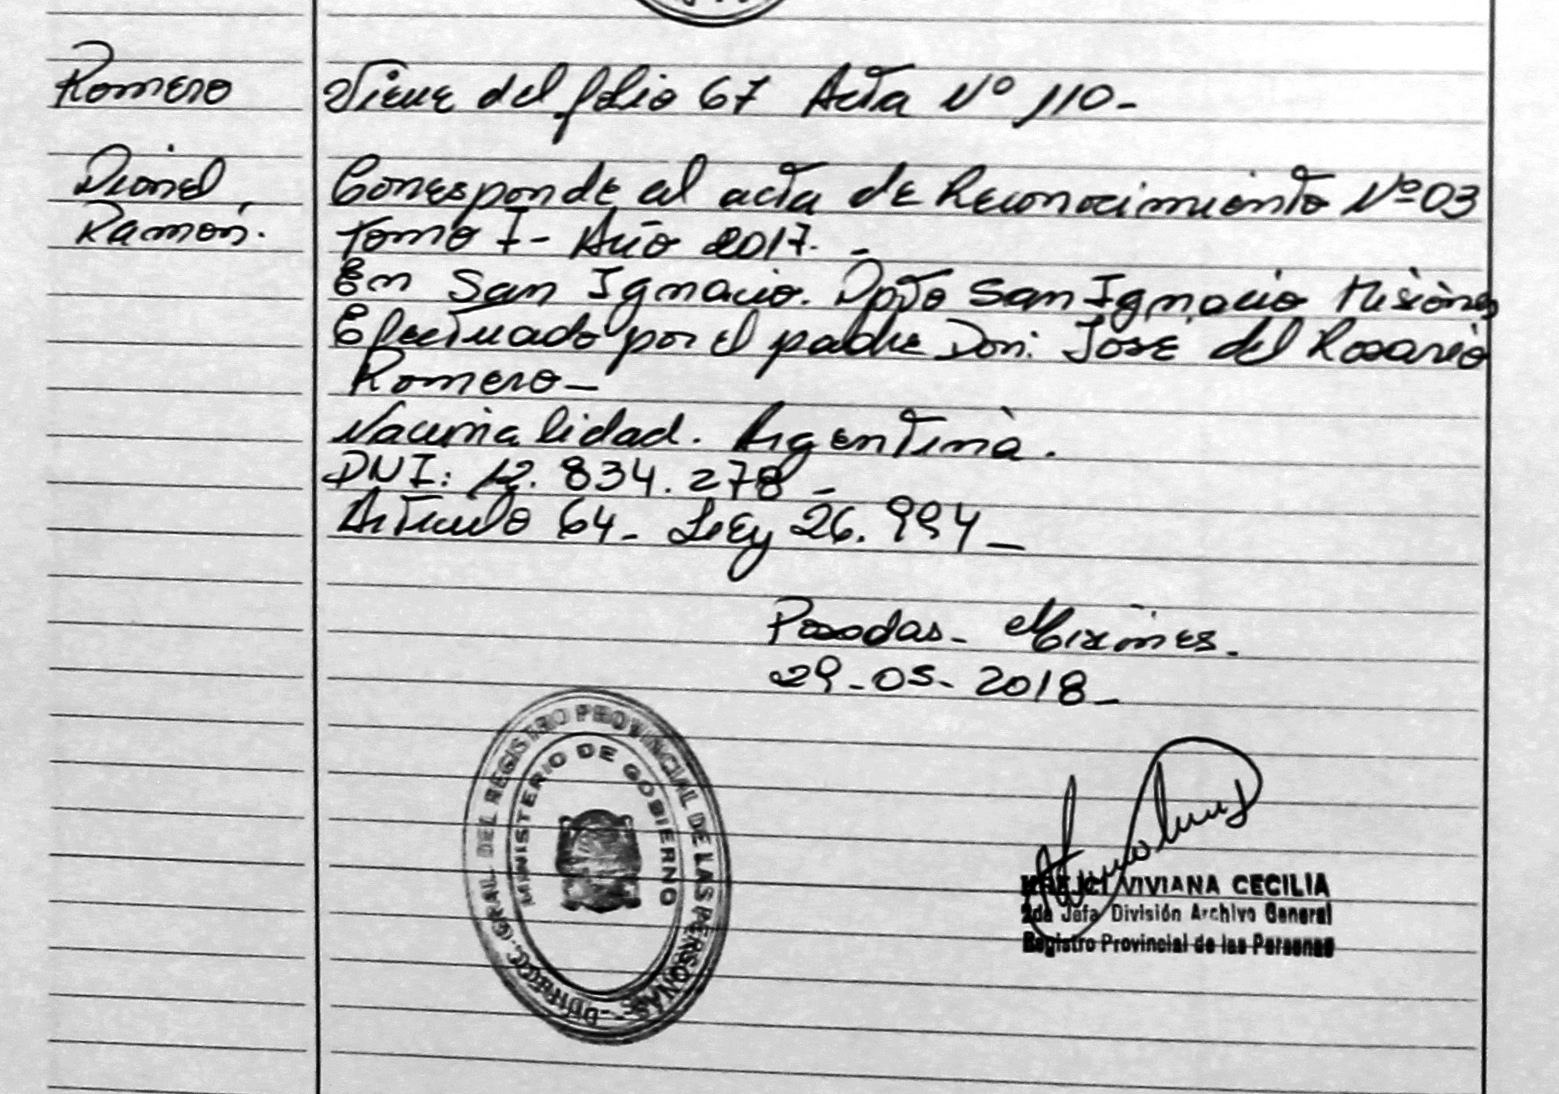 Romero
Dionel
Ramón.
Viene del folio 67 Acta Nº 110-
Corresponde al acta de Reconocimiento Nº 03
Tomo I - Año 2017. -
En San Ignacio. Dpto San Ignacio Misiones
Efectuado por el padre Don: José del Rosario
Romero -
Nacionalidad. Argentina.
DNI: 12.834.278 -
Artículo 64 - Ley 26.994 -
Posadas - Misiones.
29-05-2018 -
DIRECC. GRAL. DEL REGISTRO PROVINCIAL DE LAS PERSONAS -
MINISTERIO DE GOBIERNO
VIVIANA CECILIA
2da Jefa División Archivo General
Registro Provincial de las Personas